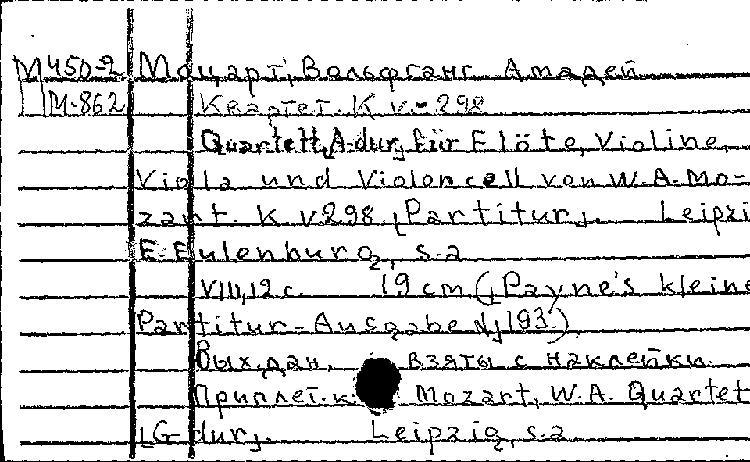 М450-2 Моцарт, Вольфганг Амадей
М-862 Квартет. K v.-298
Quartett, A-dur, für Flöte, Violine,
Viola und Violoncell von W.A. Mo-
zart. K v298 [Partitur]. Leipzi
E. Eulenburg, s.a
VIII, 12 c. 19 cm (Payne's kleine
Partitur-Ausgabe N 193)
Вых. дан. взяты с наклейки.
Приплет. к Mozart, W.A. Quartet
[G-dur]. Leipzig, s.a